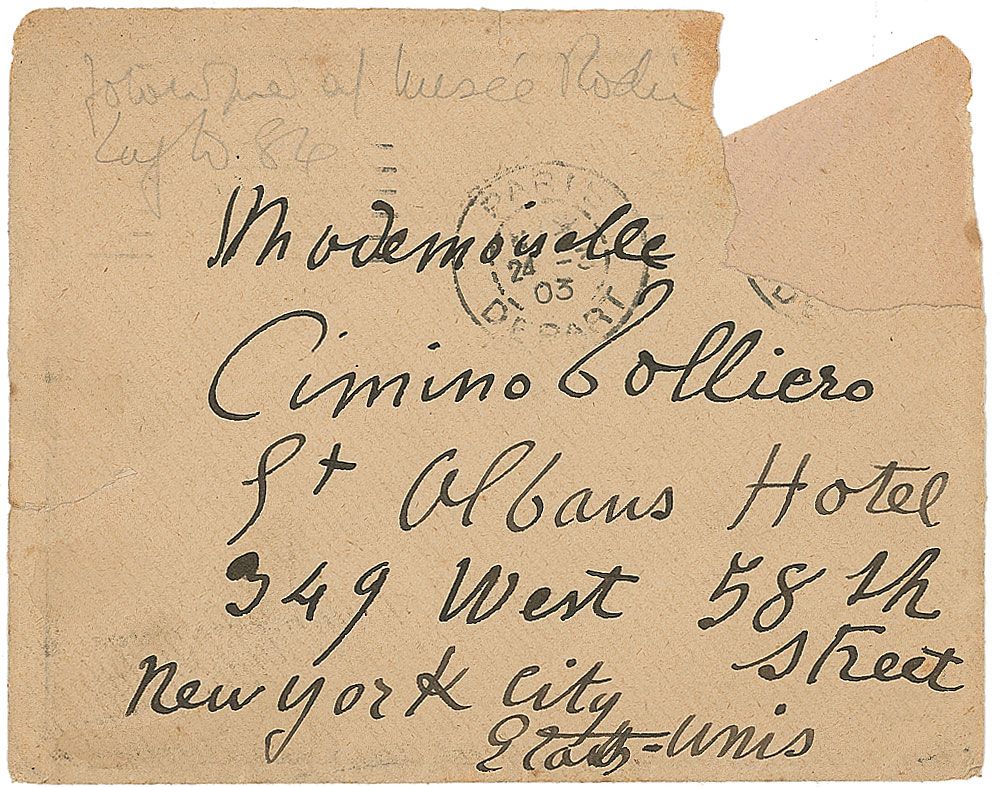 Musée Rodin
86
PARIS
24 -3
03
DEPART
DE
Mademoiselle
Cimino Folliero
St Albans Hotel
349 West 58 th
Street
New York City
Etats-Unis